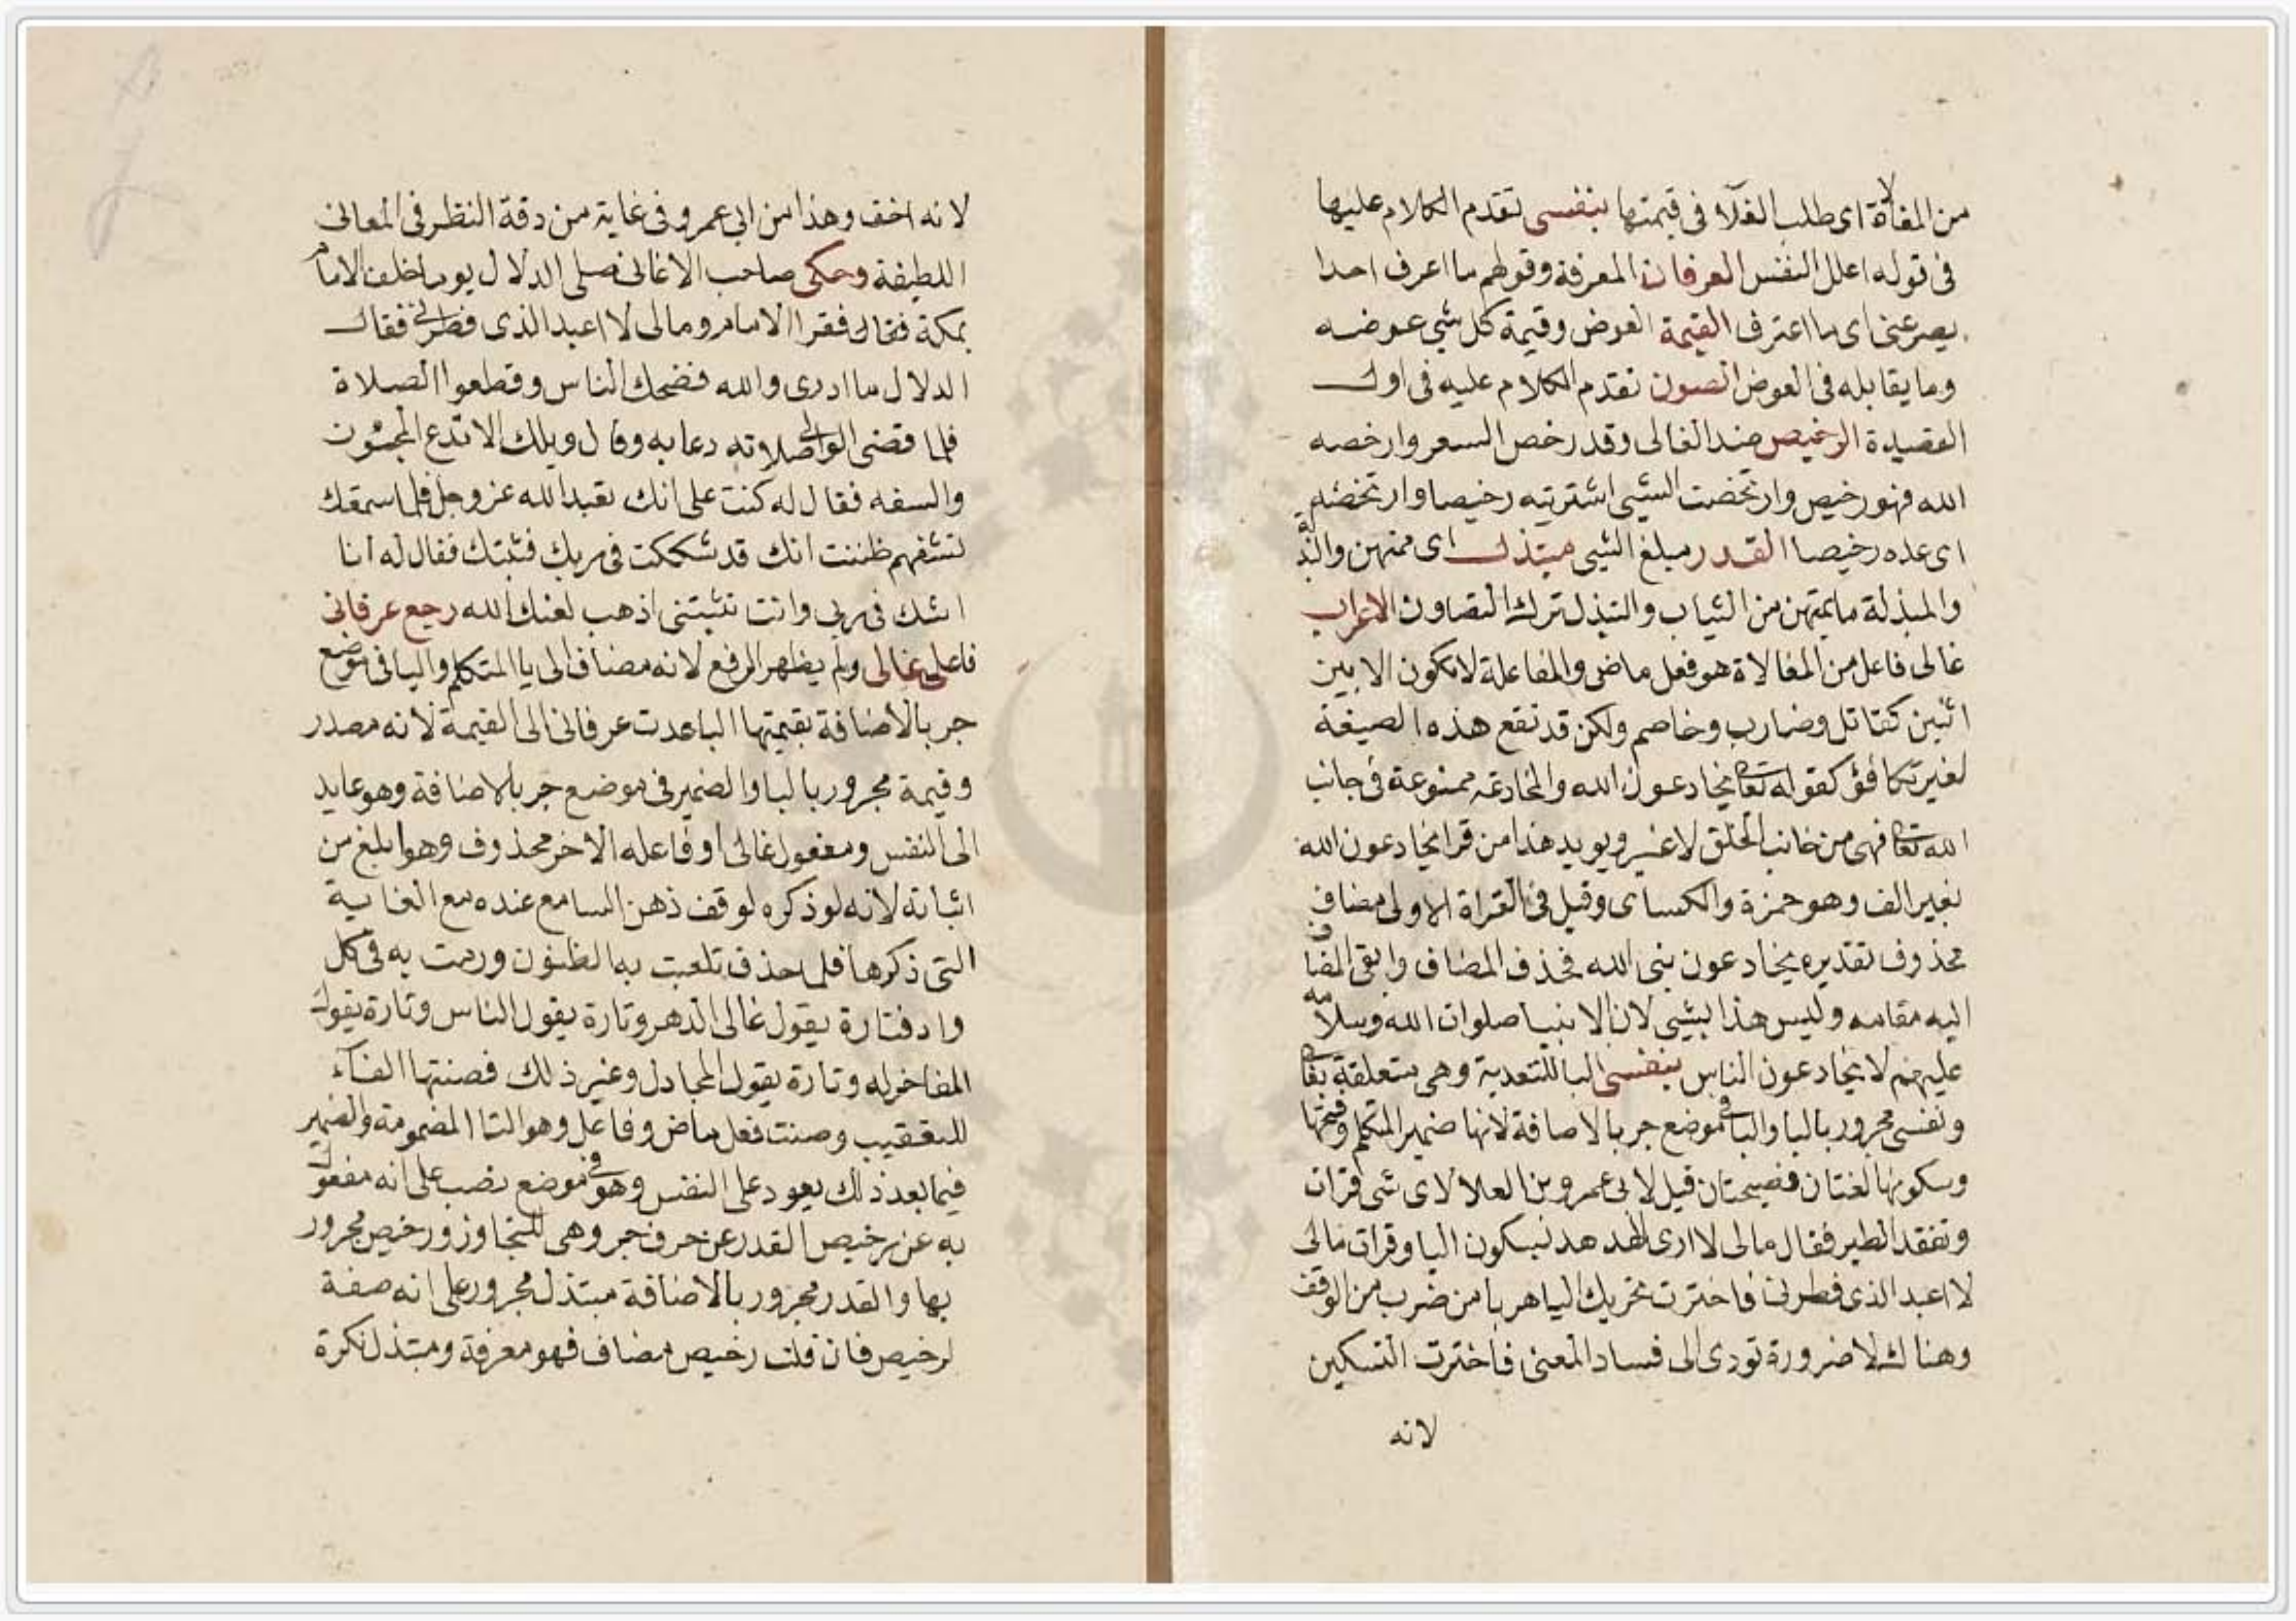 من المغالاة اى طلب الغلآ فى قيمتها بنفسى تقدم الكلام عليها
فى قوله اعلل النفس العرفان المعرفة وقولهم ما اعرف احدا
يصرعنى اى ما اعترف القيمة العوض وقيمة كل شي عوضه
وما يقابله فى العوض الصون تقدم الكلام عليه فى اول
القصيدة الرخيص ضد الغالى وقد رخص السعر وارخصه
الله فهو رخيص وارتخصت الشيى اشتريته رخيصا وارتخصه
اى عده رخيصا القدر مبلغ الشيى مبتذل اى ممتهن والبذلة
والمبذلة ما يمتهن من الثياب والتبذل ترك التصاون الاعراب
غالى فاعل من المغالاة هو فعل ماض والمفاعلة لا تكون الا بين
اثنين كقاتل وضارب وخاصم ولكن قد تقع هذه الصيغة
لغير تكافؤ كقوله تعا يخادعون الله والمخادعة ممنوعة فى جانب
الله تعا فهى من جانب الخلق لا غير ويويد هذا من قرا يخادعون الله
بغير الف وهو حمزة والكساى وقيل فى القراة الاولى مضاف
محذوف تقديره يخادعون بنى الله فحذف المضاف وابقى المضاف
اليه مقامه وليس هذا بشيى لان الانبيا صلوات الله وسلامه
عليهم لا يخادعون الناس بنفسى البا للتعدية وهى متعلقة بغا
ونفسى مجرور بالبا واليا فى موضع جر بالاضافة لانها ضمير المتكلم وفتحها
وسكونها لغتان فصيحتان قيل لابى عمرو بن العلا لاى شى قرات
وتفقد الطير فقال مالى لا ارى الهدهد بسكون اليا وقرات مالى
لا اعبد الذى فطرنى فاخترت تحريك اليا هربا من ضرب من الوقف
وهنالك لا ضرورة تودى الى فساد المعنى فاخترت التسكين
لانه
لانه اخف وهذا من ابى عمرو فى غاية من دقة النظر فى المعانى
اللطيفة وحكى صاحب الاغانى صلى الدلال يوما خلف الامام
بمكة فقال فقرا الامام ومالى لا اعبد الذى فطرنى فقال
الدلال ما ادرى والله فضحك الناس وقطعوا الصلاة
فلما قضى الوالى صلاته دعا به وقال ويلك الا تدع المجون
والسفه فقال له كنت على انك تعبد الله عز وجل فلما سمعتك
تستفهم ظننت انك قد شككت فى ربك فثبتك فقال له انا
اشك فى ربى وانت تثبتنى اذهب لعنك الله رجع عرفانى
فاعل غالى ولم يظهر الرفع لانه مضاف الى يا المتكلم واليا فى موضع
جر بالاضافة بقيمتها البا عدت عرفانى الى القيمة لانه مصدر
وقيمة مجرور بالبا والضمير فى موضع جر بالاضافة وهو عايد
الى النفس ومفعول غالى او فاعله الاخر محذوف وهو ابلغ من
اثباته لانه لو ذكره لوقف ذهن السامع عنده مع الغاية
التى ذكرها فلما حذف تلعبت به الظنون ورمت به فى كل
واد فتارة يقول غالى الدهر وتارة يقول الناس وتارة يقول
المفاخر له وتارة يقول المجادل وغير ذلك فصنتها الفآء
للتعقيب وصنت فعل ماض وفاعل وهو التا المضمومة والضمير
فيما بعد ذلك يعود على النفس وهو فى موضع نصب على انه مفعول
به عن رخيص القدر عن حرف جر وهى للتجاوز ورخيص مجرور
بها والقدر مجرور بالاضافة مبتذل مجرور على انه صفة
لرخيص فان قلت رخيص مضاف فهو معرفة ومبتذل نكرة